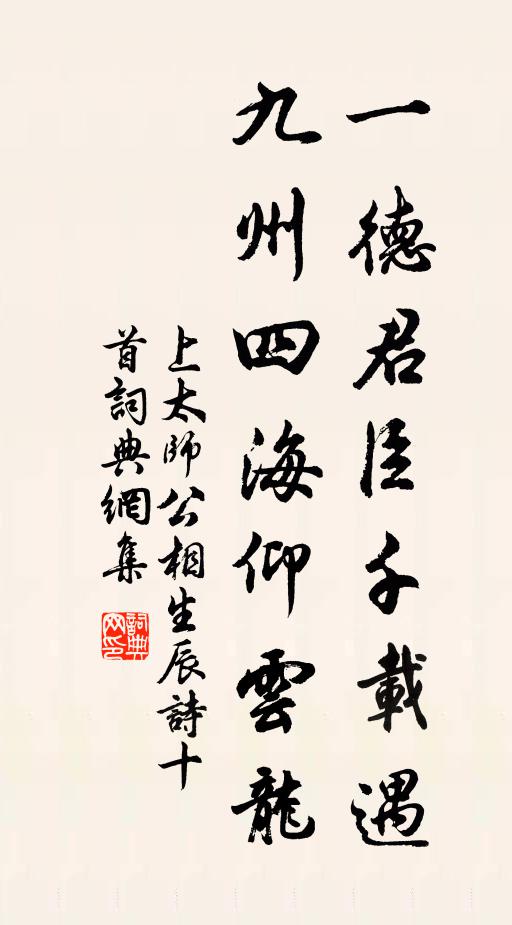 一德君臣千載遇
九州四海仰雲龍
上太師公相生辰詩十
首詞典網集
詞典网印